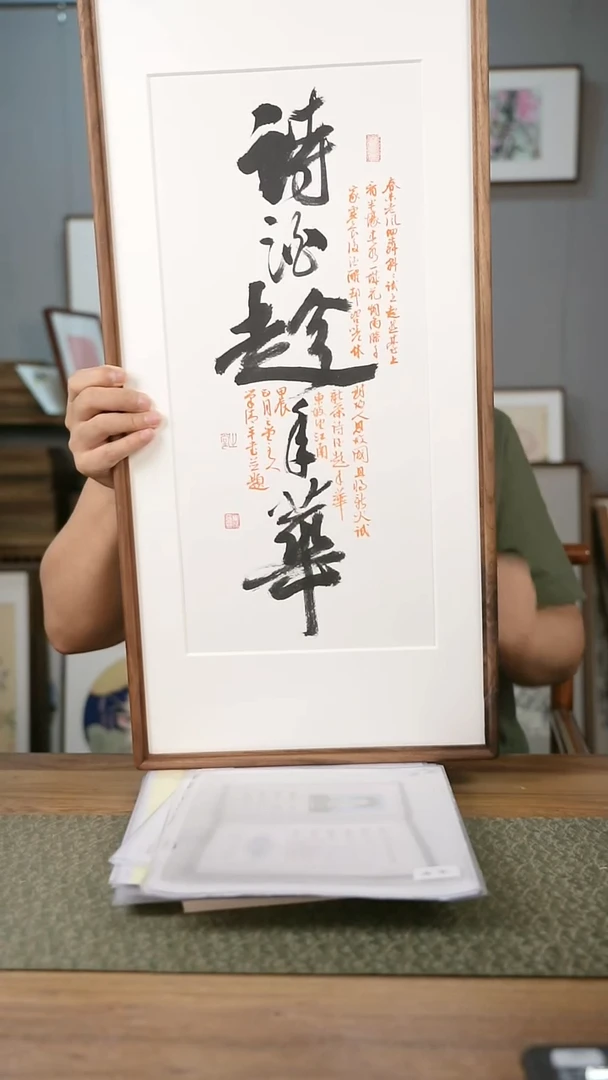 詩酒趁年華
春未老風細柳斜斜試上超然臺上
看半壕春水一城花烟雨暗千
家寒食後酒醒却咨嗟休
對故人思故國且將新火試
新茶詩酒趁年華
東坡望江南
甲辰